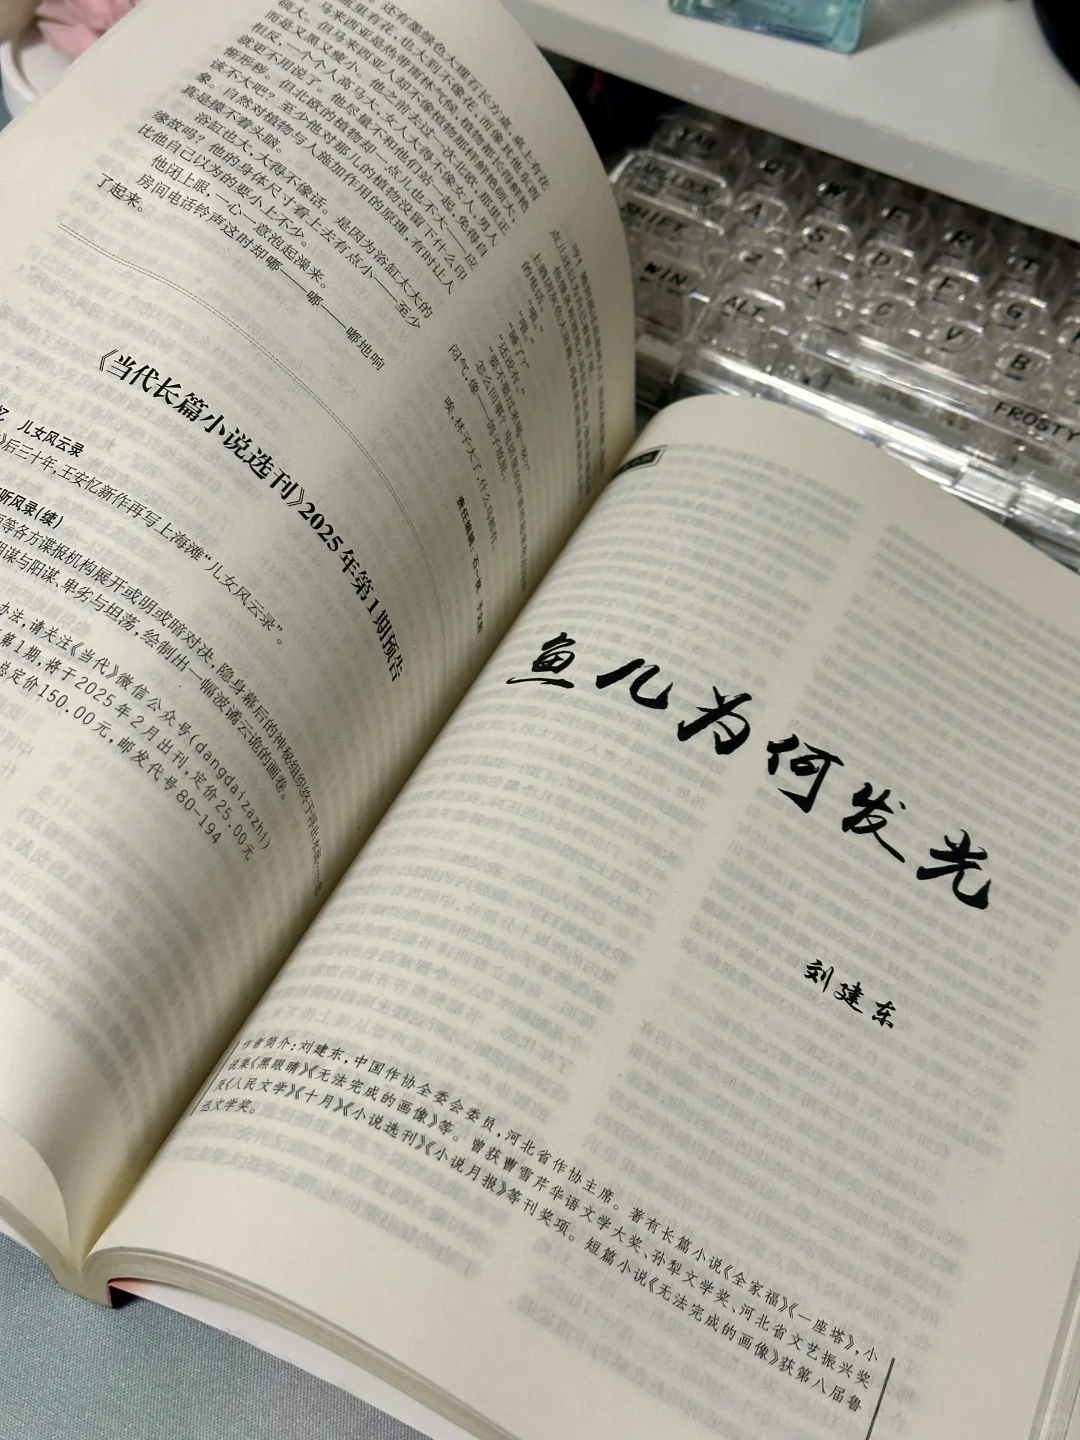 还有墨绿色大理石长方桌,桌上有花
瓶里有花,也大到不像花,而像其他东西
马来西亚是热带雨林气候,植物都长得鲜艳
硕大。但马来西亚人却不像植物那样鲜艳硕大,
而是又黑又瘦小。他之前去过一次北欧,那里正
相反,一个个人高马大,女人大得不像女人,男人
就更不用说了。他尽量不和他们站一起,免得自
惭形秽。但北欧的植物却一点儿也不大——应
该不大吧?至少他对那儿的植物没留下什么印
象。自然对植物与人施加作用的原理,有时让人
真是摸不着头脑。
浴缸也大,大得不像话。是因为浴缸太大的
缘故吗?他的身体尺寸看上去有点小——至少
比他自己以为的要小上不少。
他闭上眼,一心一意泡起澡来。
房间电话铃声这时却嘟——嘟——嘟地响
了起来。
的电话。
“喂。”
“喂。”
“睡了?”
“还没有。”
“要不要过来喝一杯?”
怎么回事?电话里的声音听起来有
闷气,像
唉,林子大了,什么鸟都有。
责任编辑:石一枫
《当代长篇小说选刊》2025年第1期预告
忆 儿女风云录
》后三十年,王安忆新作再写上海滩“儿女风云录”。
听风录(续)
等各方谍报机构展开或明或暗对决,隐身幕后的神秘组织终于浮出水面……
阴谋与阳谋、卑劣与坦荡,绘制出一幅波谲云诡的画卷。
办法,请关注《当代》微信公众号(dangdaizazhi)
第1期,将于2025年2月出刊,定价25.00元
总定价150.00元,邮发代号80-194
鱼儿为何发光
刘建东
作者简介:刘建东,中国作协全委会委员,河北省作协主席。著有长篇小说《全家福》《一座塔》,小
说集《黑眼睛》《无法完成的画像》等。曾获曹雪芹华语文学大奖、孙犁文学奖、河北省文艺振兴奖
及《人民文学》《十月》《小说选刊》《小说月报》等刊奖项。短篇小说《无法完成的画像》获第八届鲁
迅文学奖。
Q
W
E
R
T
CAPS LOCK
A
S
D
F
G
SHIFT
Z
X
C
V
B
WIN
ALT
FROSTY